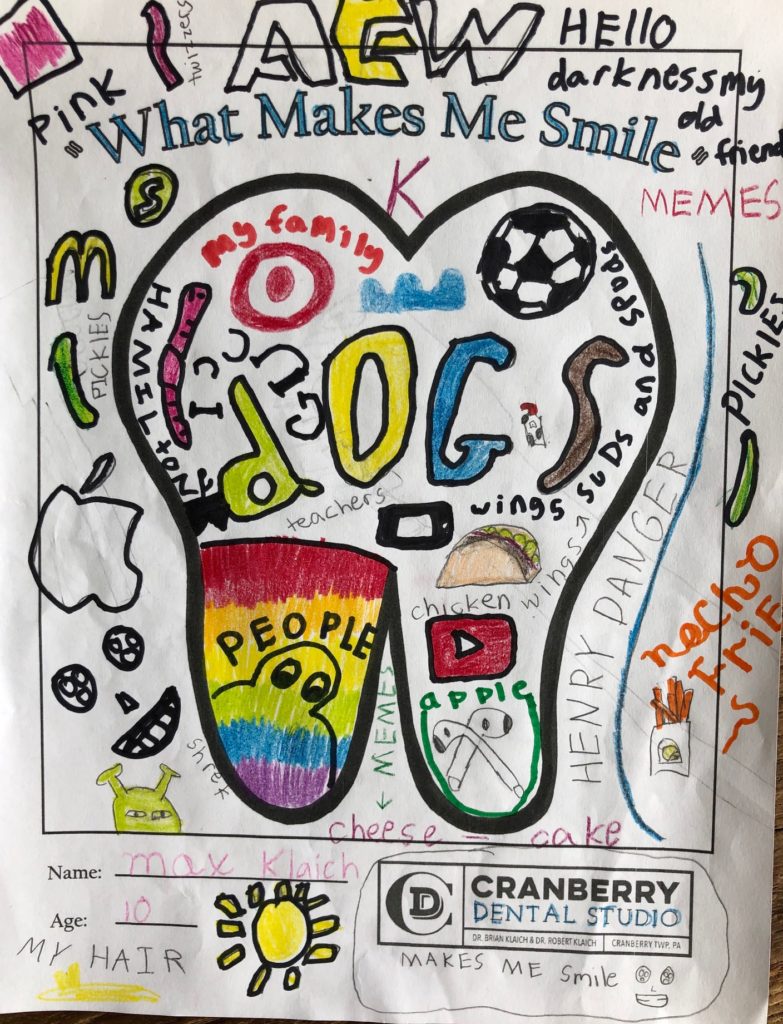 AEW
HELLO
darkness my
old
friend
twizzers
Pink
What Makes Me Smile
K
MEMES
S
my family
HAMILTON
PICKIES
PICKIES
GUCCI
DOGS
suds and spuds
wings
teachers
chicken wings
HENRY DANGER
nacho
Frie
s
PEOPLE
apple
MEMES
shrek
cheese - cake
Name: max Klaich
Age: 10
MY HAIR
CD
CRANBERRY
DENTAL STUDIO
DR. BRIAN KLAICH & DR. ROBERT KLAICH | CRANBERRY TWP, PA
MAKES ME Smile